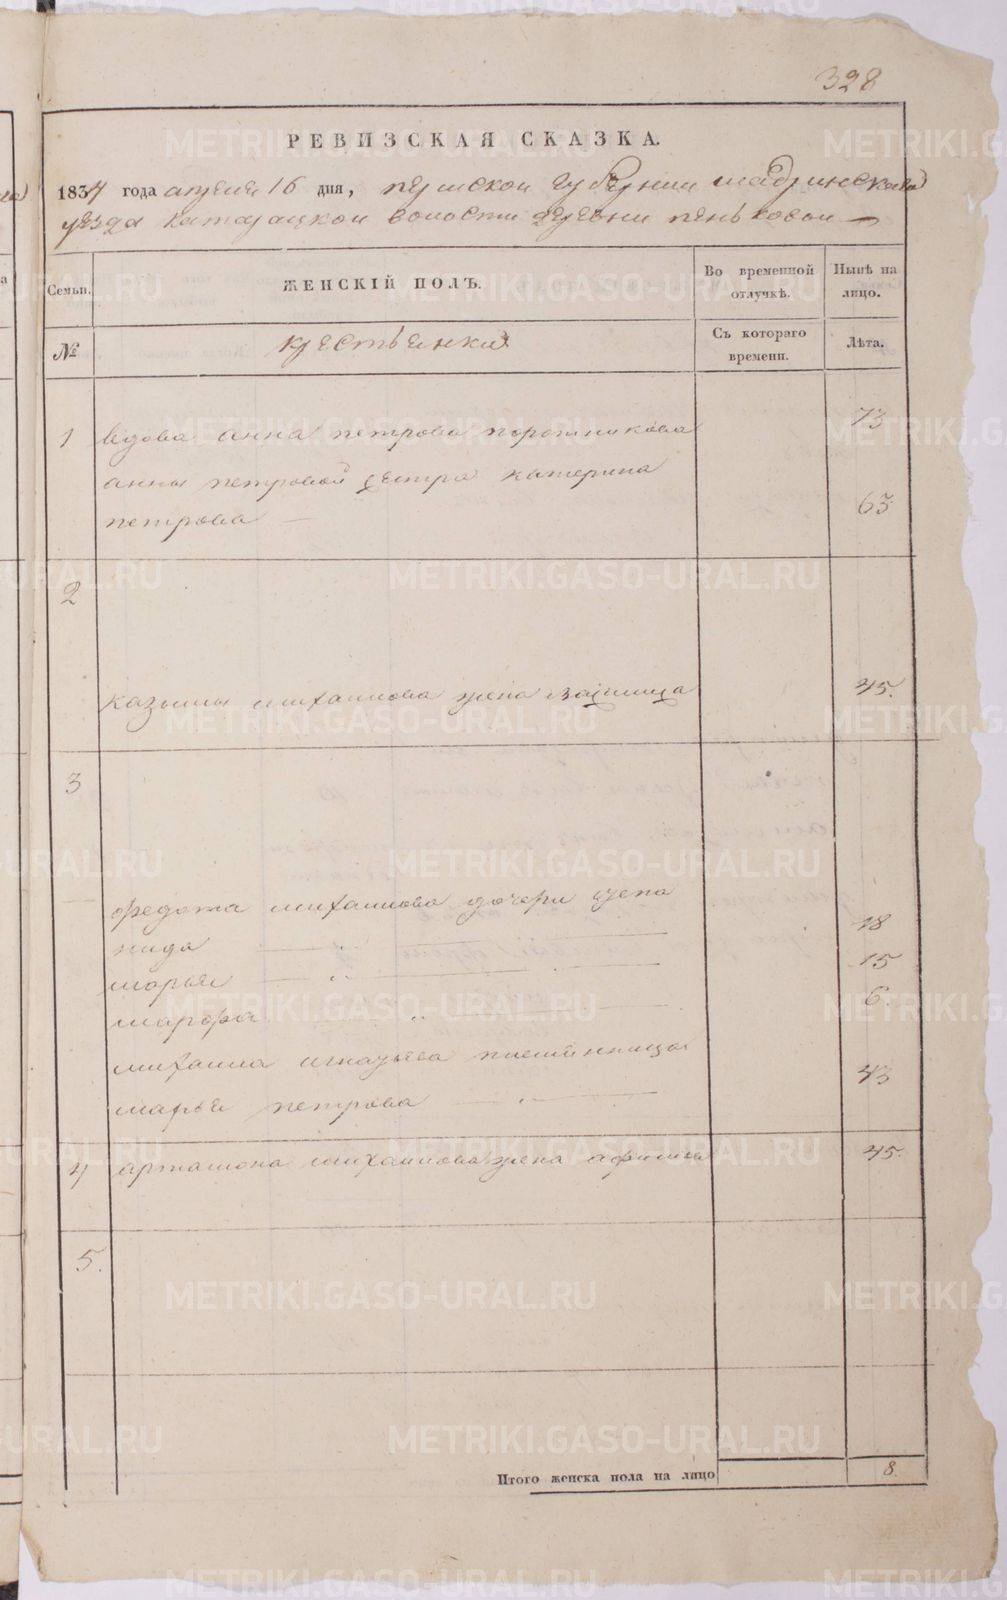 328
РЕВИЗСКАЯ СКАЗКА.
1834 года апреля 16 дня, пермской губернии шадринскаго
уезда катарацкой волости деревни пеньковой
Семьи.
ЖЕНСКІЙ ПОЛЪ.
Во временной отлучкѣ.
Нынѣ на лицо.
№
крестьянки
Съ котораго времени.
Лѣта.
1 вдова анна петрова поротникова 73
анны петровой сестра катерина
петрова 63
2
михаилова жена 45.
3
федота михаилова дочери степа
нида 18
марья 15
марфа 6.
михаила игнатьева племянница
марья петрова 43
4 артамона михаилова жена афимья 45.
5.
Итого женска пола на лицо 8.
METRIKI.GASO-URAL.RU